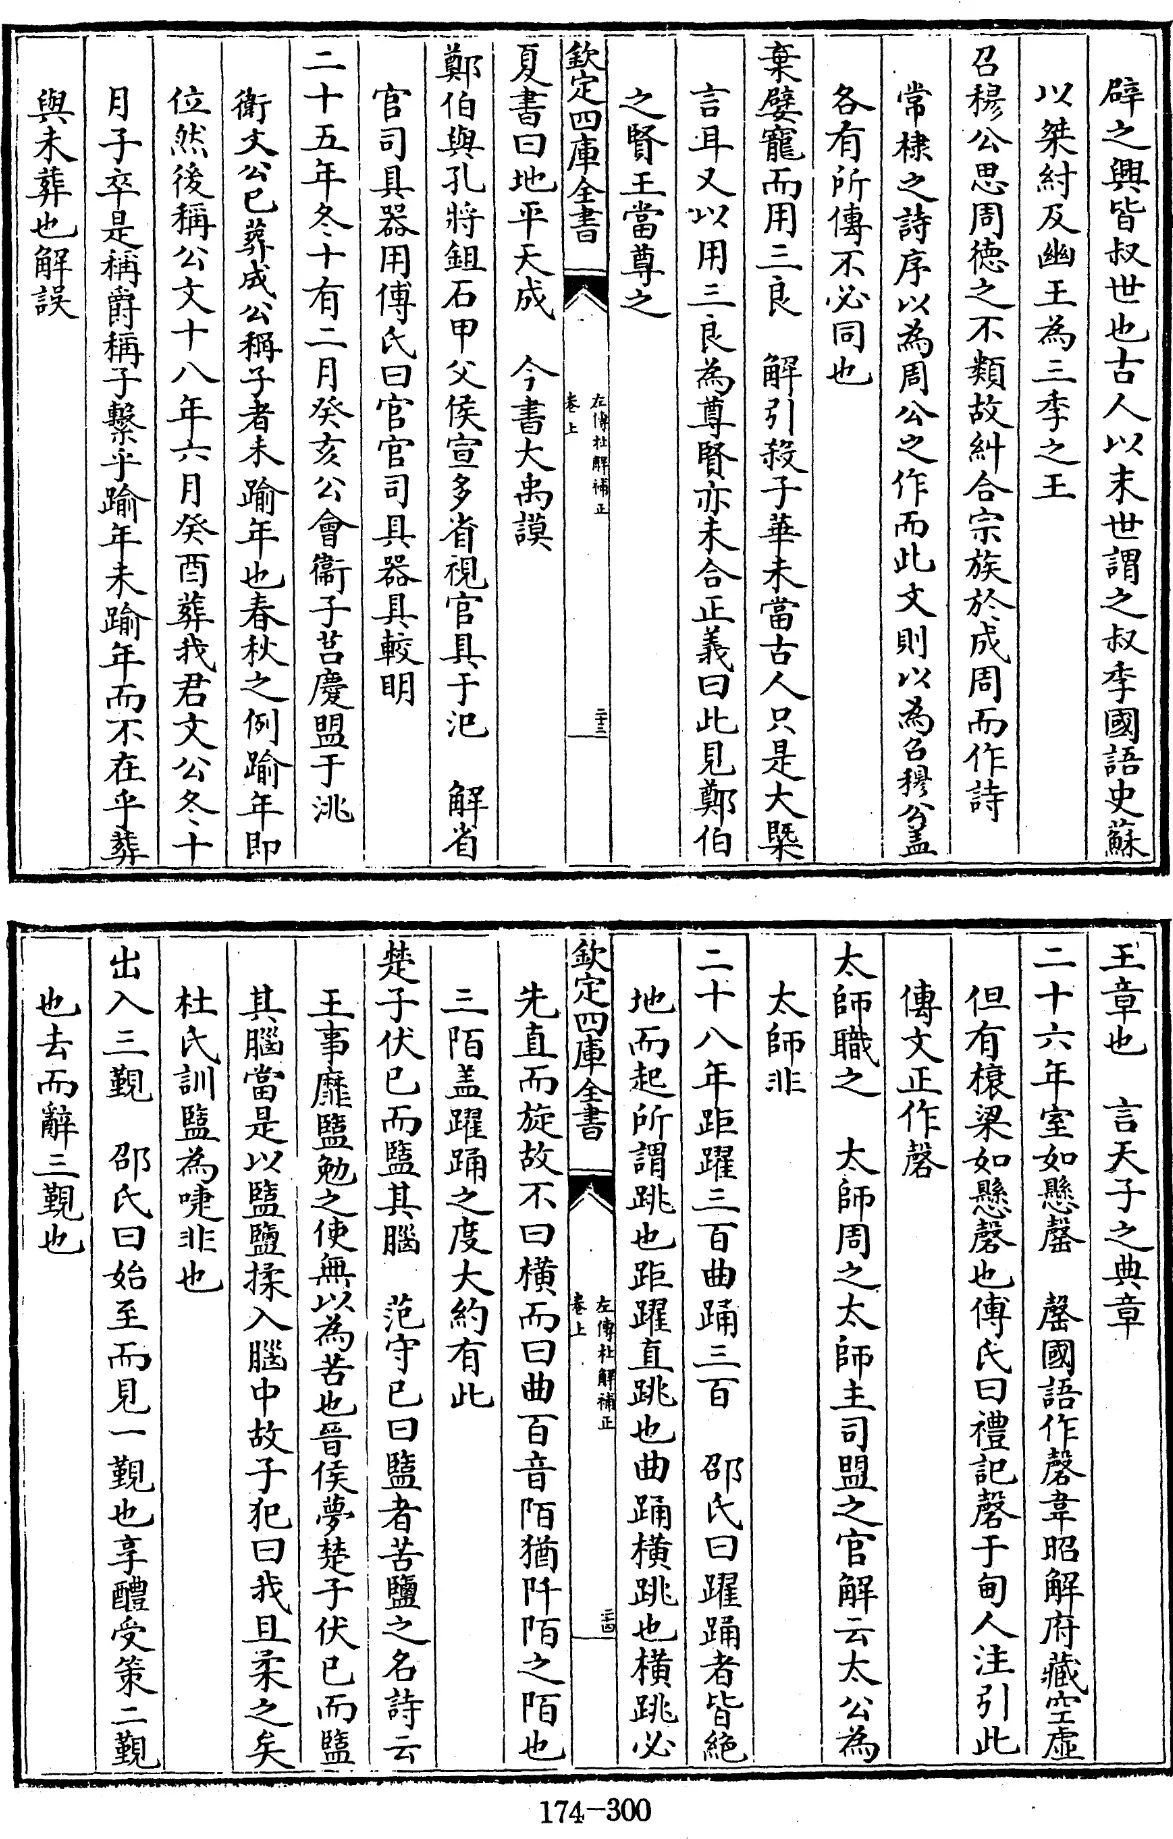 辟之興皆叔世也古人以末世謂之叔季國語史蘇
以桀紂及幽王為三季之王
召穆公思周德之不類故糾合宗族於成周而作詩
常棣之詩序以為周公之作而此文則以為召穆公盖
各有所傳不必同也
棄嬖寵而用三良　解引殺子華未當古人只是大槩
言耳又以用三良為尊賢亦未合正義曰此見鄭伯
之賢王當尊之
欽定四庫全書
左傳杜解補正
卷上
二十三
夏書曰地平天成　今書大禹謨
鄭伯與孔將鉏石甲父侯宣多省視官具于汜　解省
官司具器用傅氏曰官官司具器具較明
二十五年冬十有二月癸亥公會衞子莒慶盟于洮
衛文公已葬成公稱子者未踰年也春秋之例踰年即
位然後稱公文十八年六月癸酉葬我君文公冬十
月子卒是稱爵稱子繫乎踰年未踰年而不在乎葬
與未葬也解誤
王章也　言天子之典章
二十六年室如懸罄　罄國語作磬韋昭解府藏空虛
但有榱梁如懸磬也傅氏曰禮記磬于甸人注引此
傳文正作磬
太師職之　太師周之太師主司盟之官解云太公為
太師非
二十八年距躍三百曲踊三百　邵氏曰躍踊者皆絶
地而起所謂跳也距躍直跳也曲踊橫跳也橫跳必
欽定四庫全書
左傳杜解補正
卷上
二十四
先直而旋故不曰橫而曰曲百音陌猶阡陌之陌也
三陌盖躍踊之度大約有此
楚子伏已而盬其腦　范守已曰盬者苦鹽之名詩云
王事靡盬勉之使無以為苦也晉侯夢楚子伏已而盬
其腦當是以盬鹽揉入腦中故子犯曰我且柔之矣
杜氏訓盬為啑非也
出入三覲　邵氏曰始至而見一覲也享醴受策二覲
也去而辭三覲也
174-300